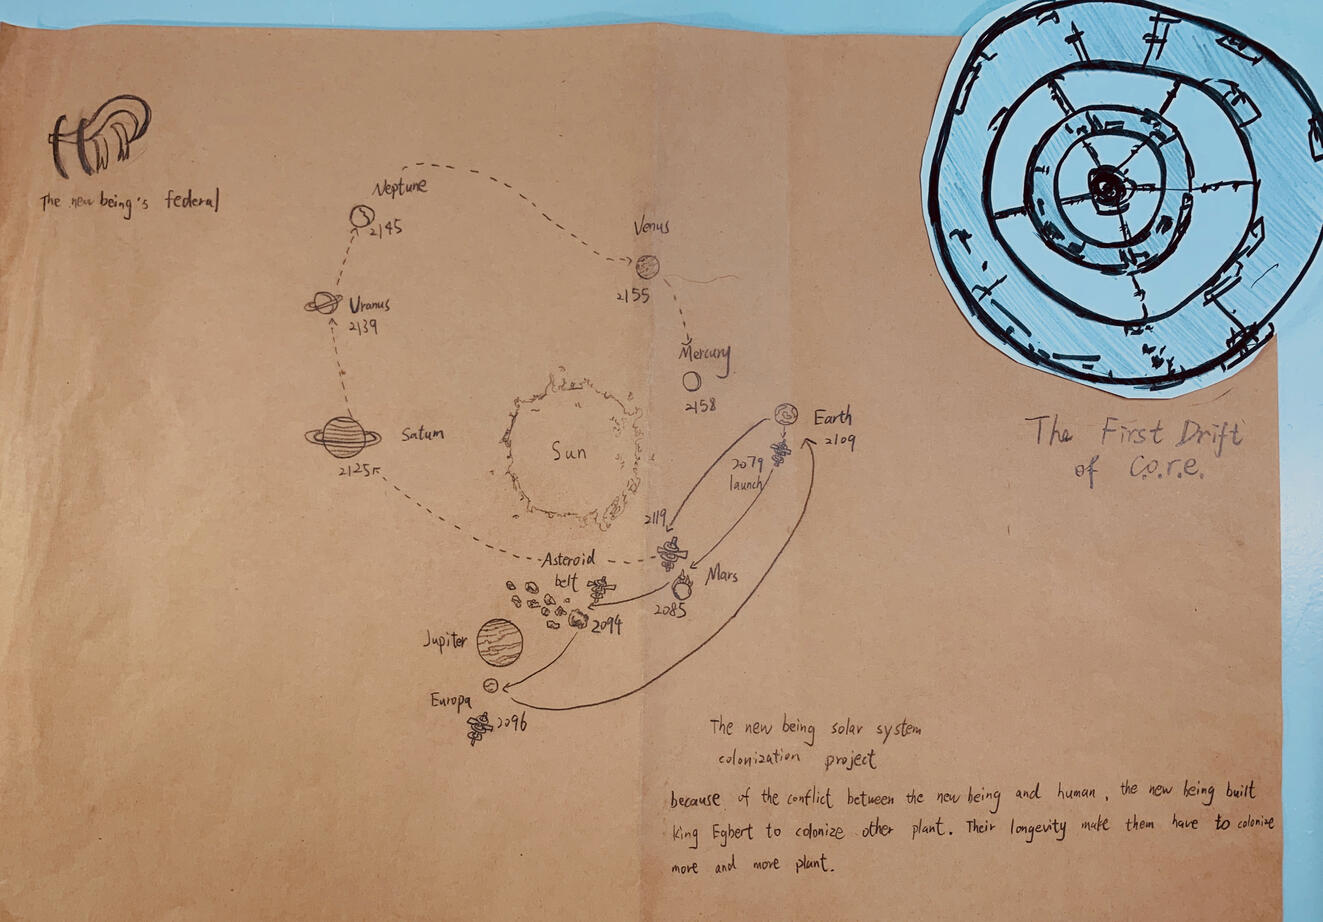 The new being's federal
Neptune
2145
Venus
2155
Uranus
2139
Mercury
2158
Earth
2109
Saturn
2125
Sun
2079
launch
The First Drift
of C.o.r.e.
2119
Asteroid
belt
Mars
2085
2094
Jupiter
Europa
2096
The new being solar system
colonization project
because of the conflict between the new being and human, the new being built
King Egbert to colonize other plant. Their longevity make them have to colonize
more and more plant.